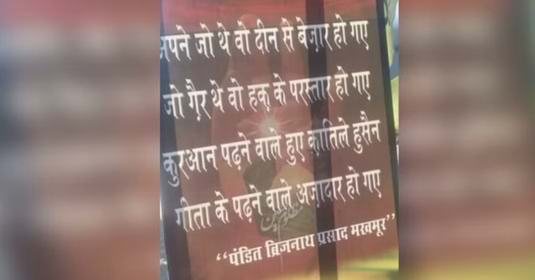 अपने जो थे वो दीन से बेज़ार हो गए
जो ग़ैर थे वो हक़ के परस्तार हो गए
क़ुरआन पढ़ने वाले हुए क़ातिले हुसैन
गीता के पढ़ने वाले अज़ादार हो गए
“पंडित ब्रिजनाथ प्रसाद मखमूर”